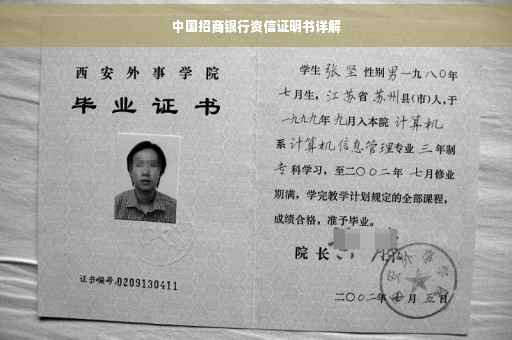 中国招商银行资信证明书详解
西安外事学院
毕业证书
证书编号:0209130411
学生 张坚 性别 男 一九八〇年
七月生，江苏省 苏州县(市)人,于
一九九九年 九月入本院 计算机
系 计算机信息管理专业 三 年制
专科学习，至二〇〇二年 七月修业
期满，学完教学计划规定的全部课程，
成绩合格，准予毕业。
院长
二〇〇二年 月 五日